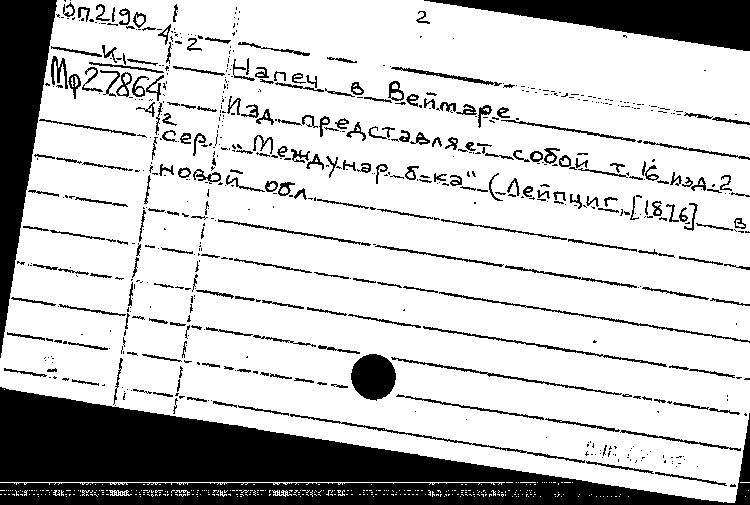 2
Оп2190
-4-2
К1
Мф27864
-4/2
Напеч в Веймаре.
Изд представляет собой т. 16 изд. 2
сер. „Междунар б-ка“ (Лейпциг, [1876] в
новой обл